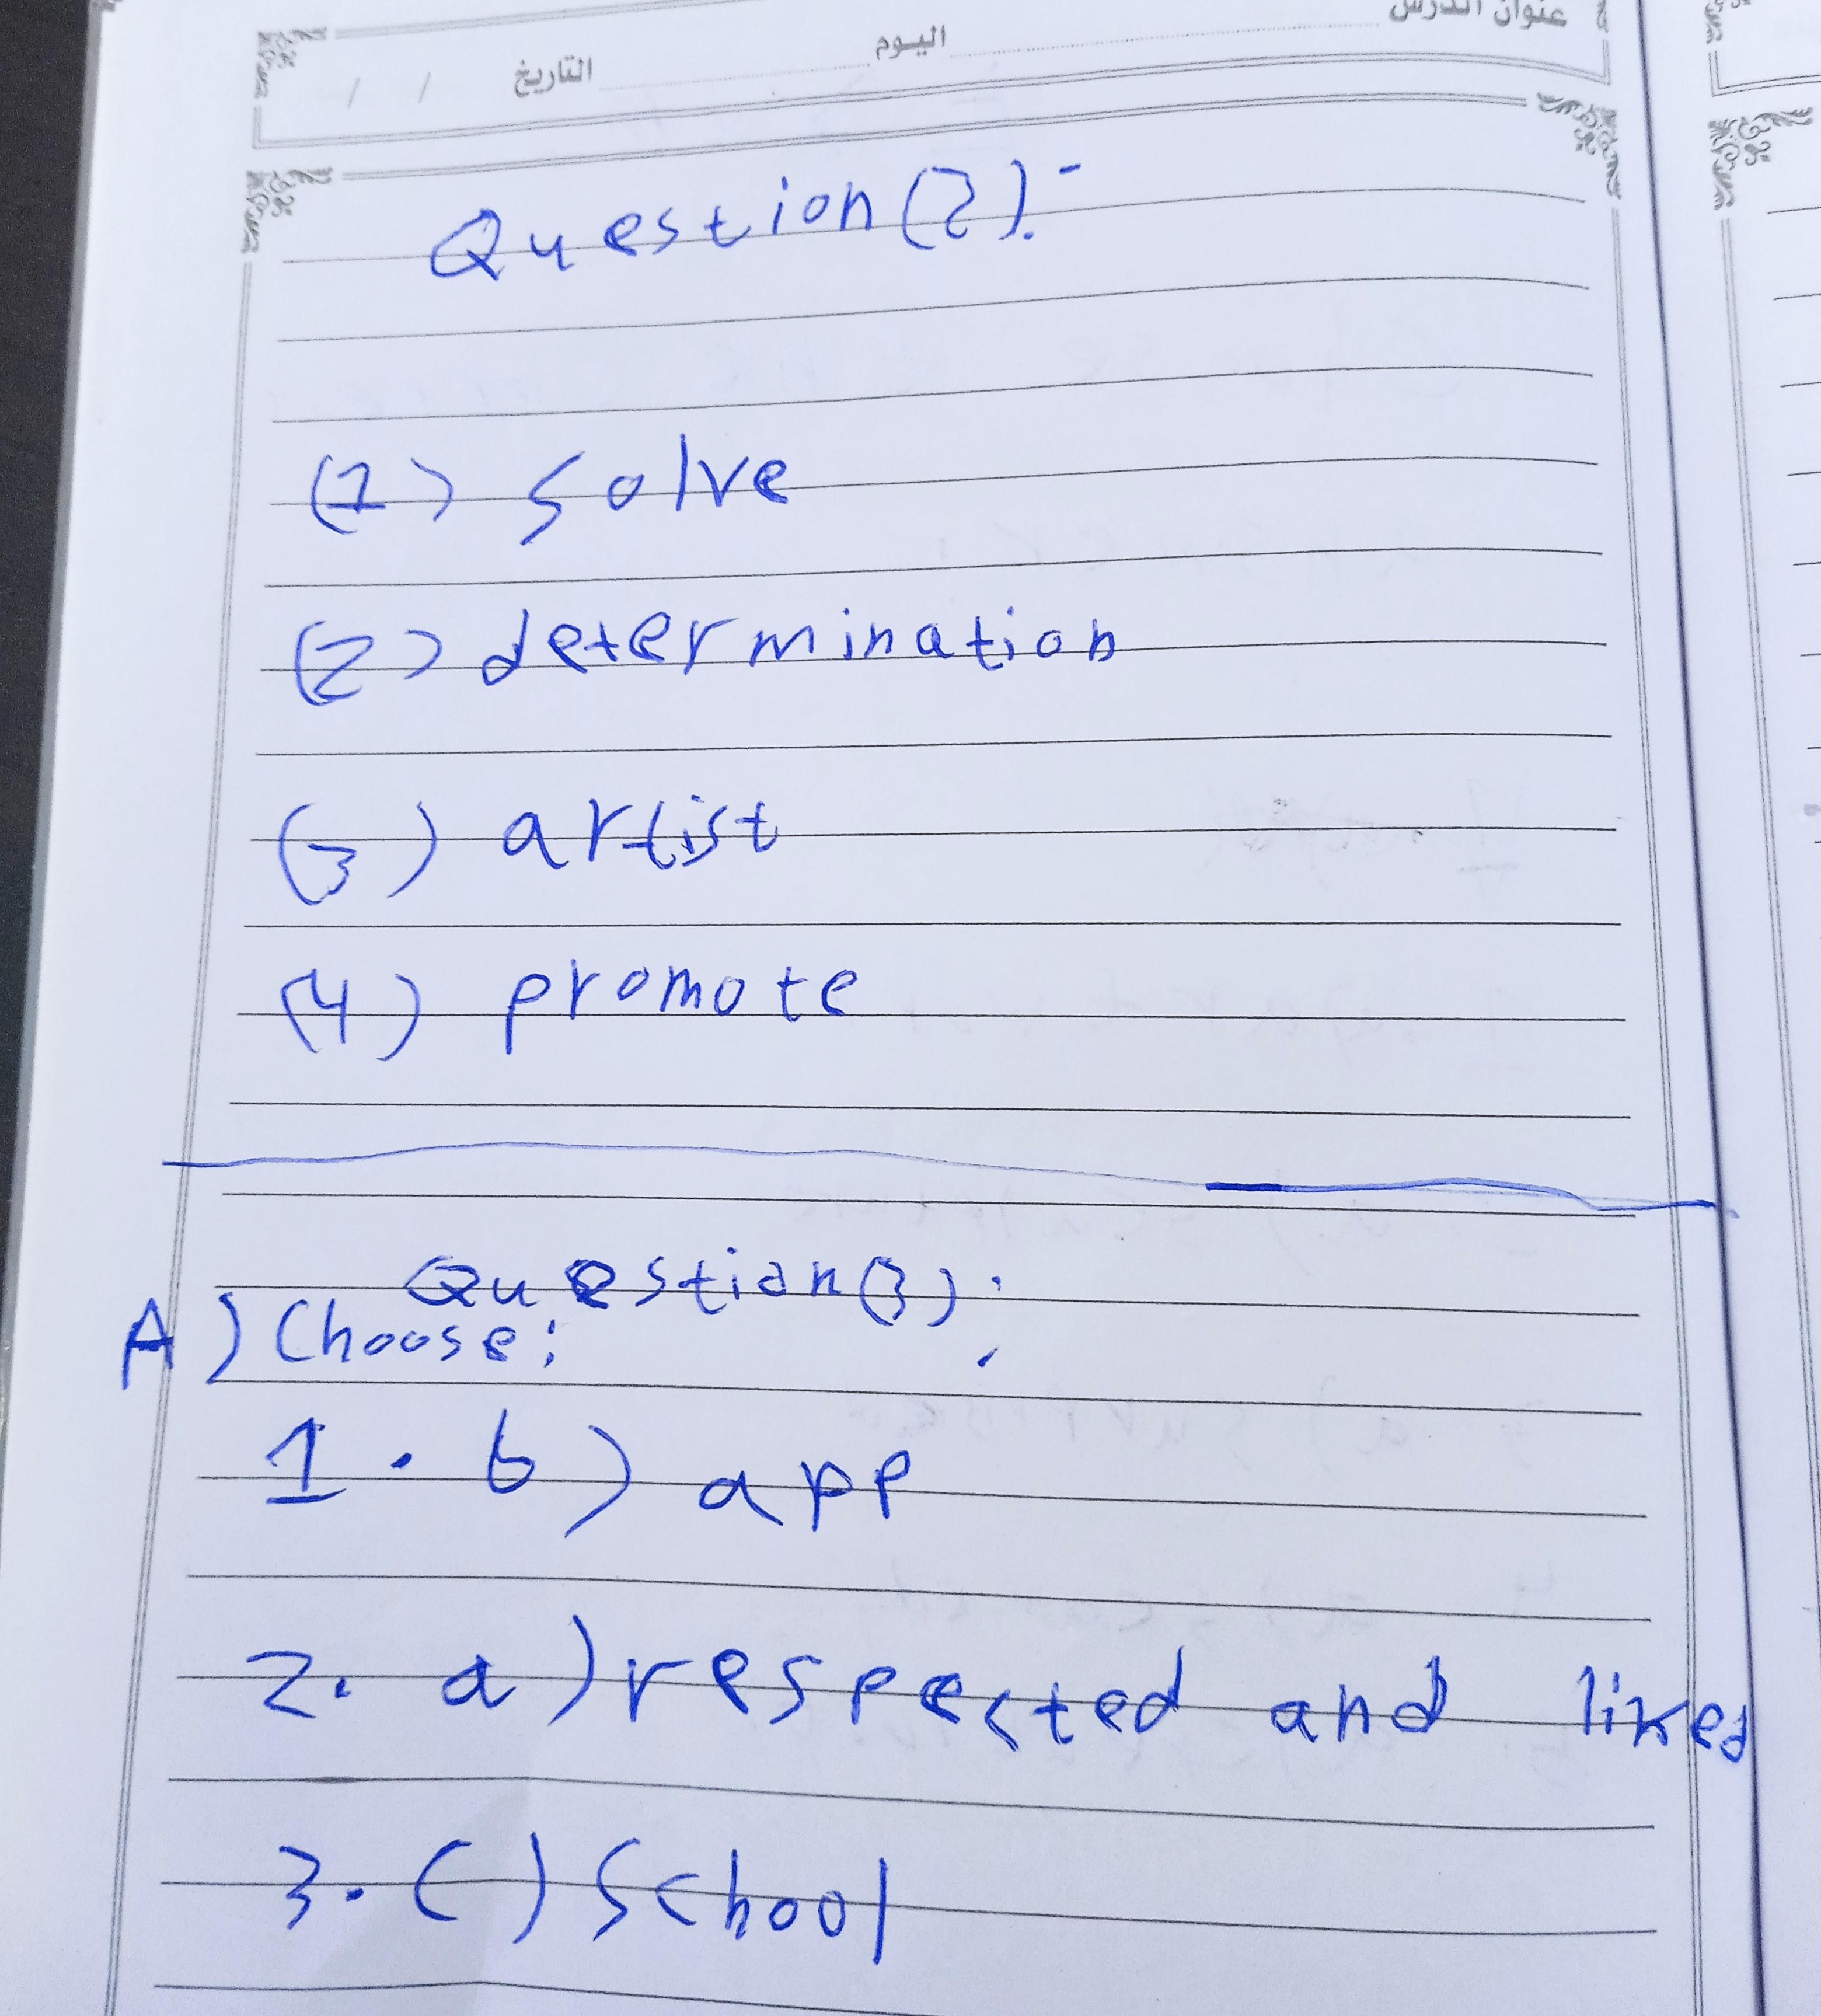 عنوان الدرس اليوم التاريخ / /
Question (2):-
(1) solve
(2) determination
(3) artist
(4) promote
Question (3):
A) Choose:
1. b) app
2. a) respected and liked
3. c) School